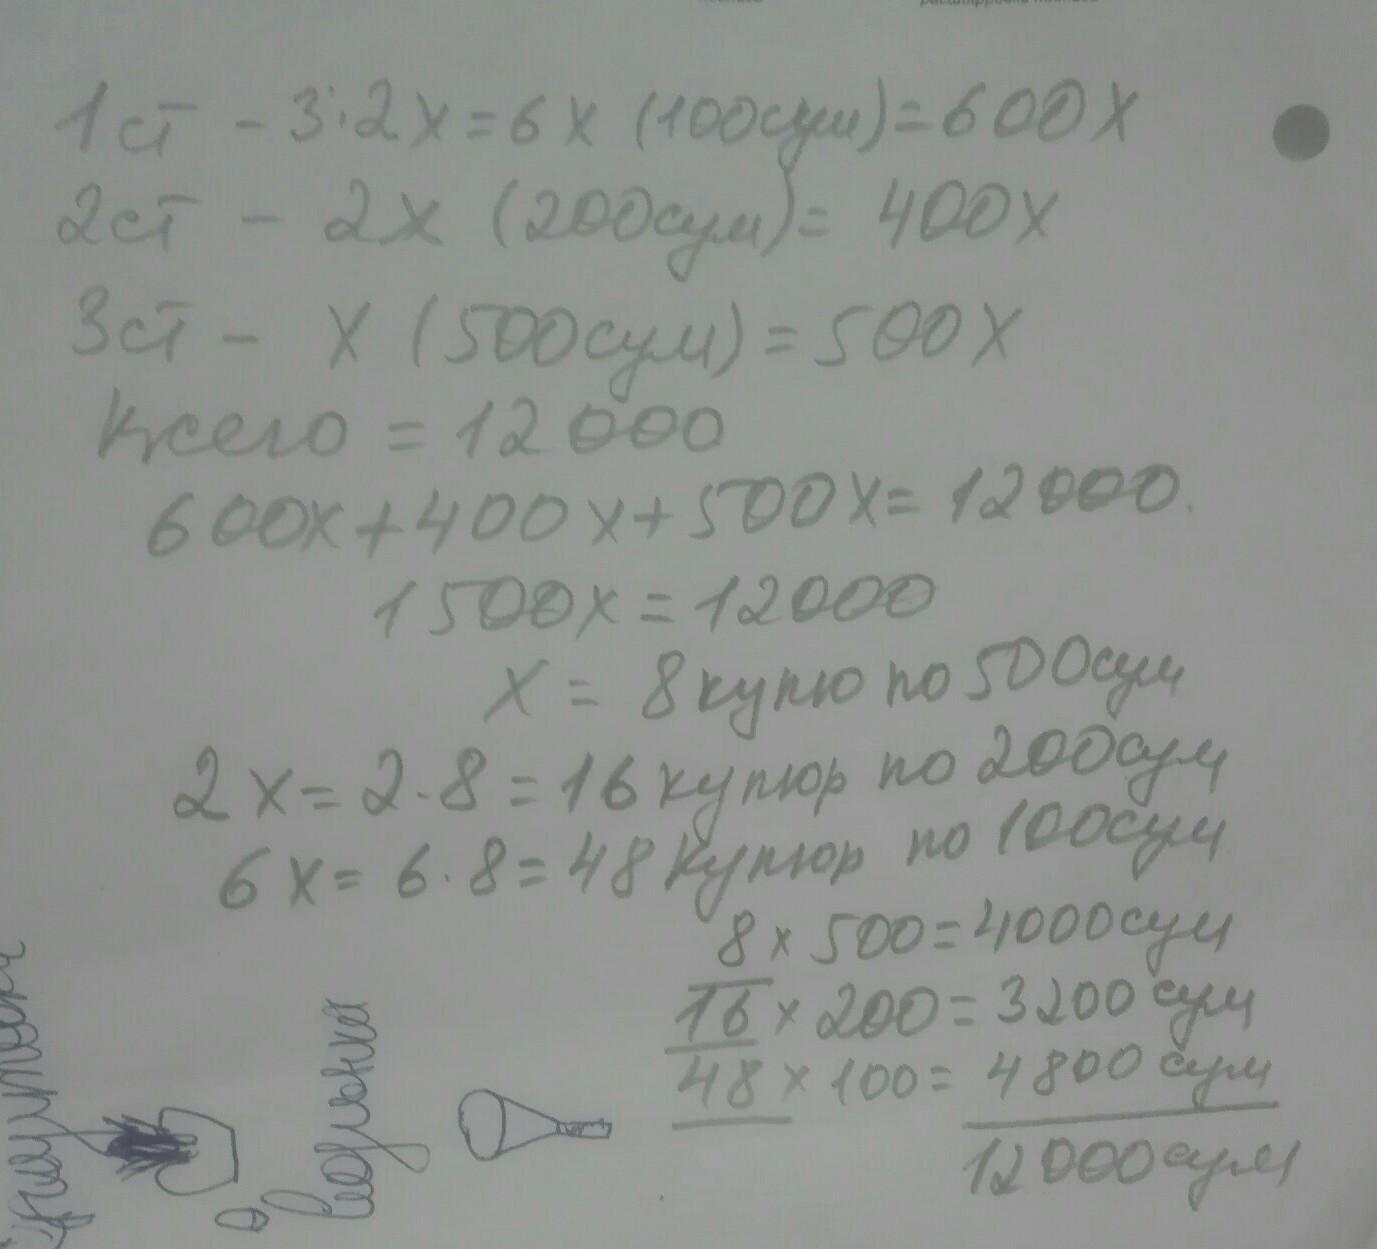 1ст - 3·2x=6x (100сум)=600x
2ст - 2x (200сум)= 400x
3ст - x (500сум)=500x
Всего =12000
600x+400x+500x=12000.
1500x=12000
x = 8 купю по 500сум
2x=2·8=16 купюр по 200сум
6x=6·8=48 купюр по 100сум
8×500=4000сум
16×200=3200 сум
48×100=4800 сум
12000сум